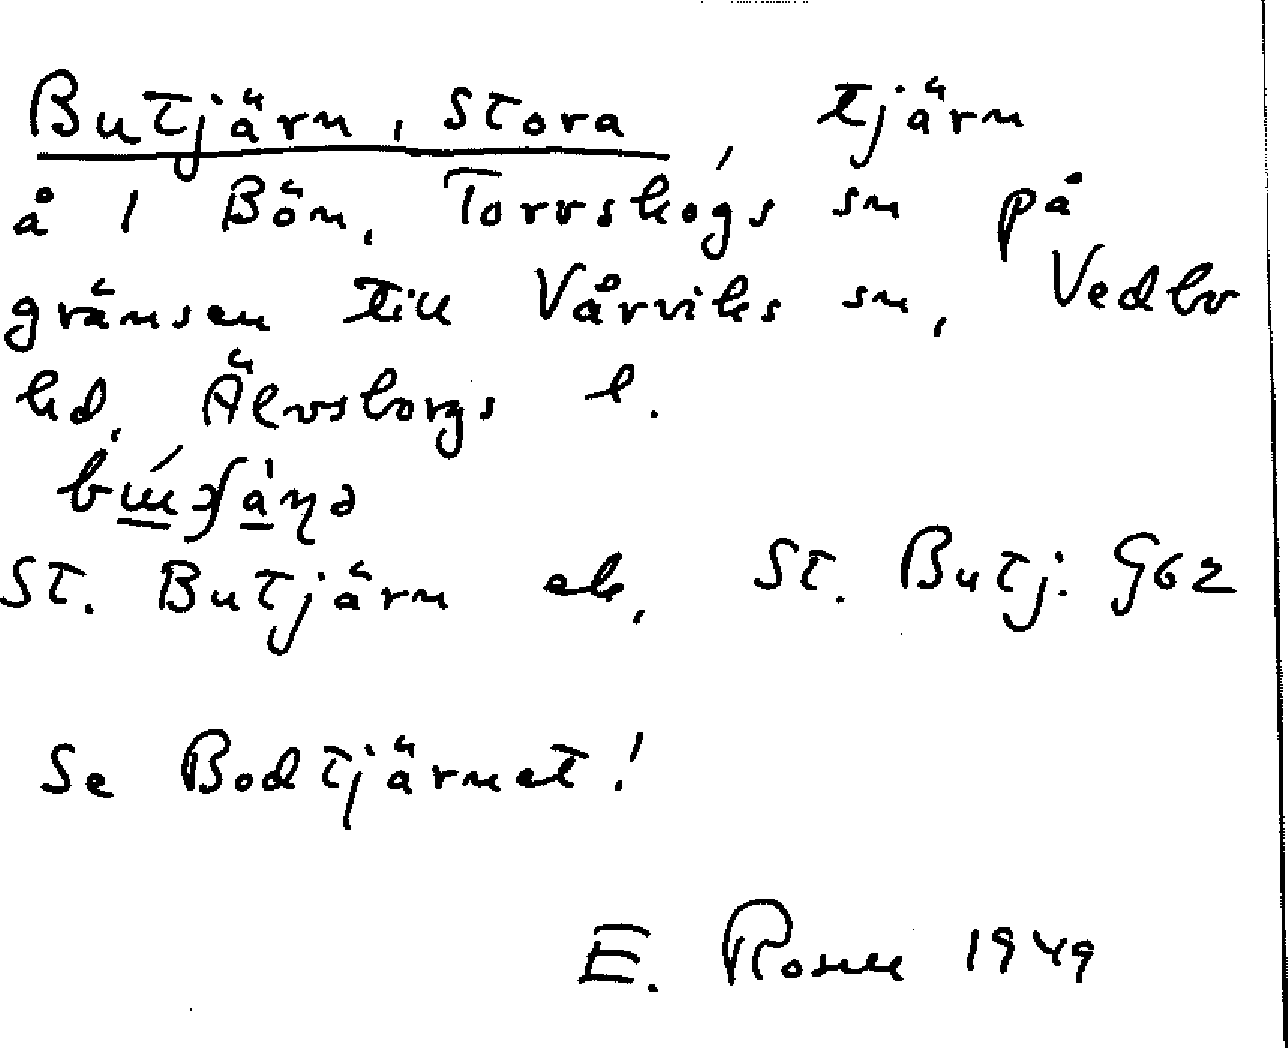 Butjärn, Stora, tjärn
å 1 Bön, Torrskogs sn på
gränsen till Vårviks sn, Vedbo
hd, Älvsborgs l.
St. Butjärn ek, St. Butj. G62
Se Bodtjärnet!
E. Rosell 1949